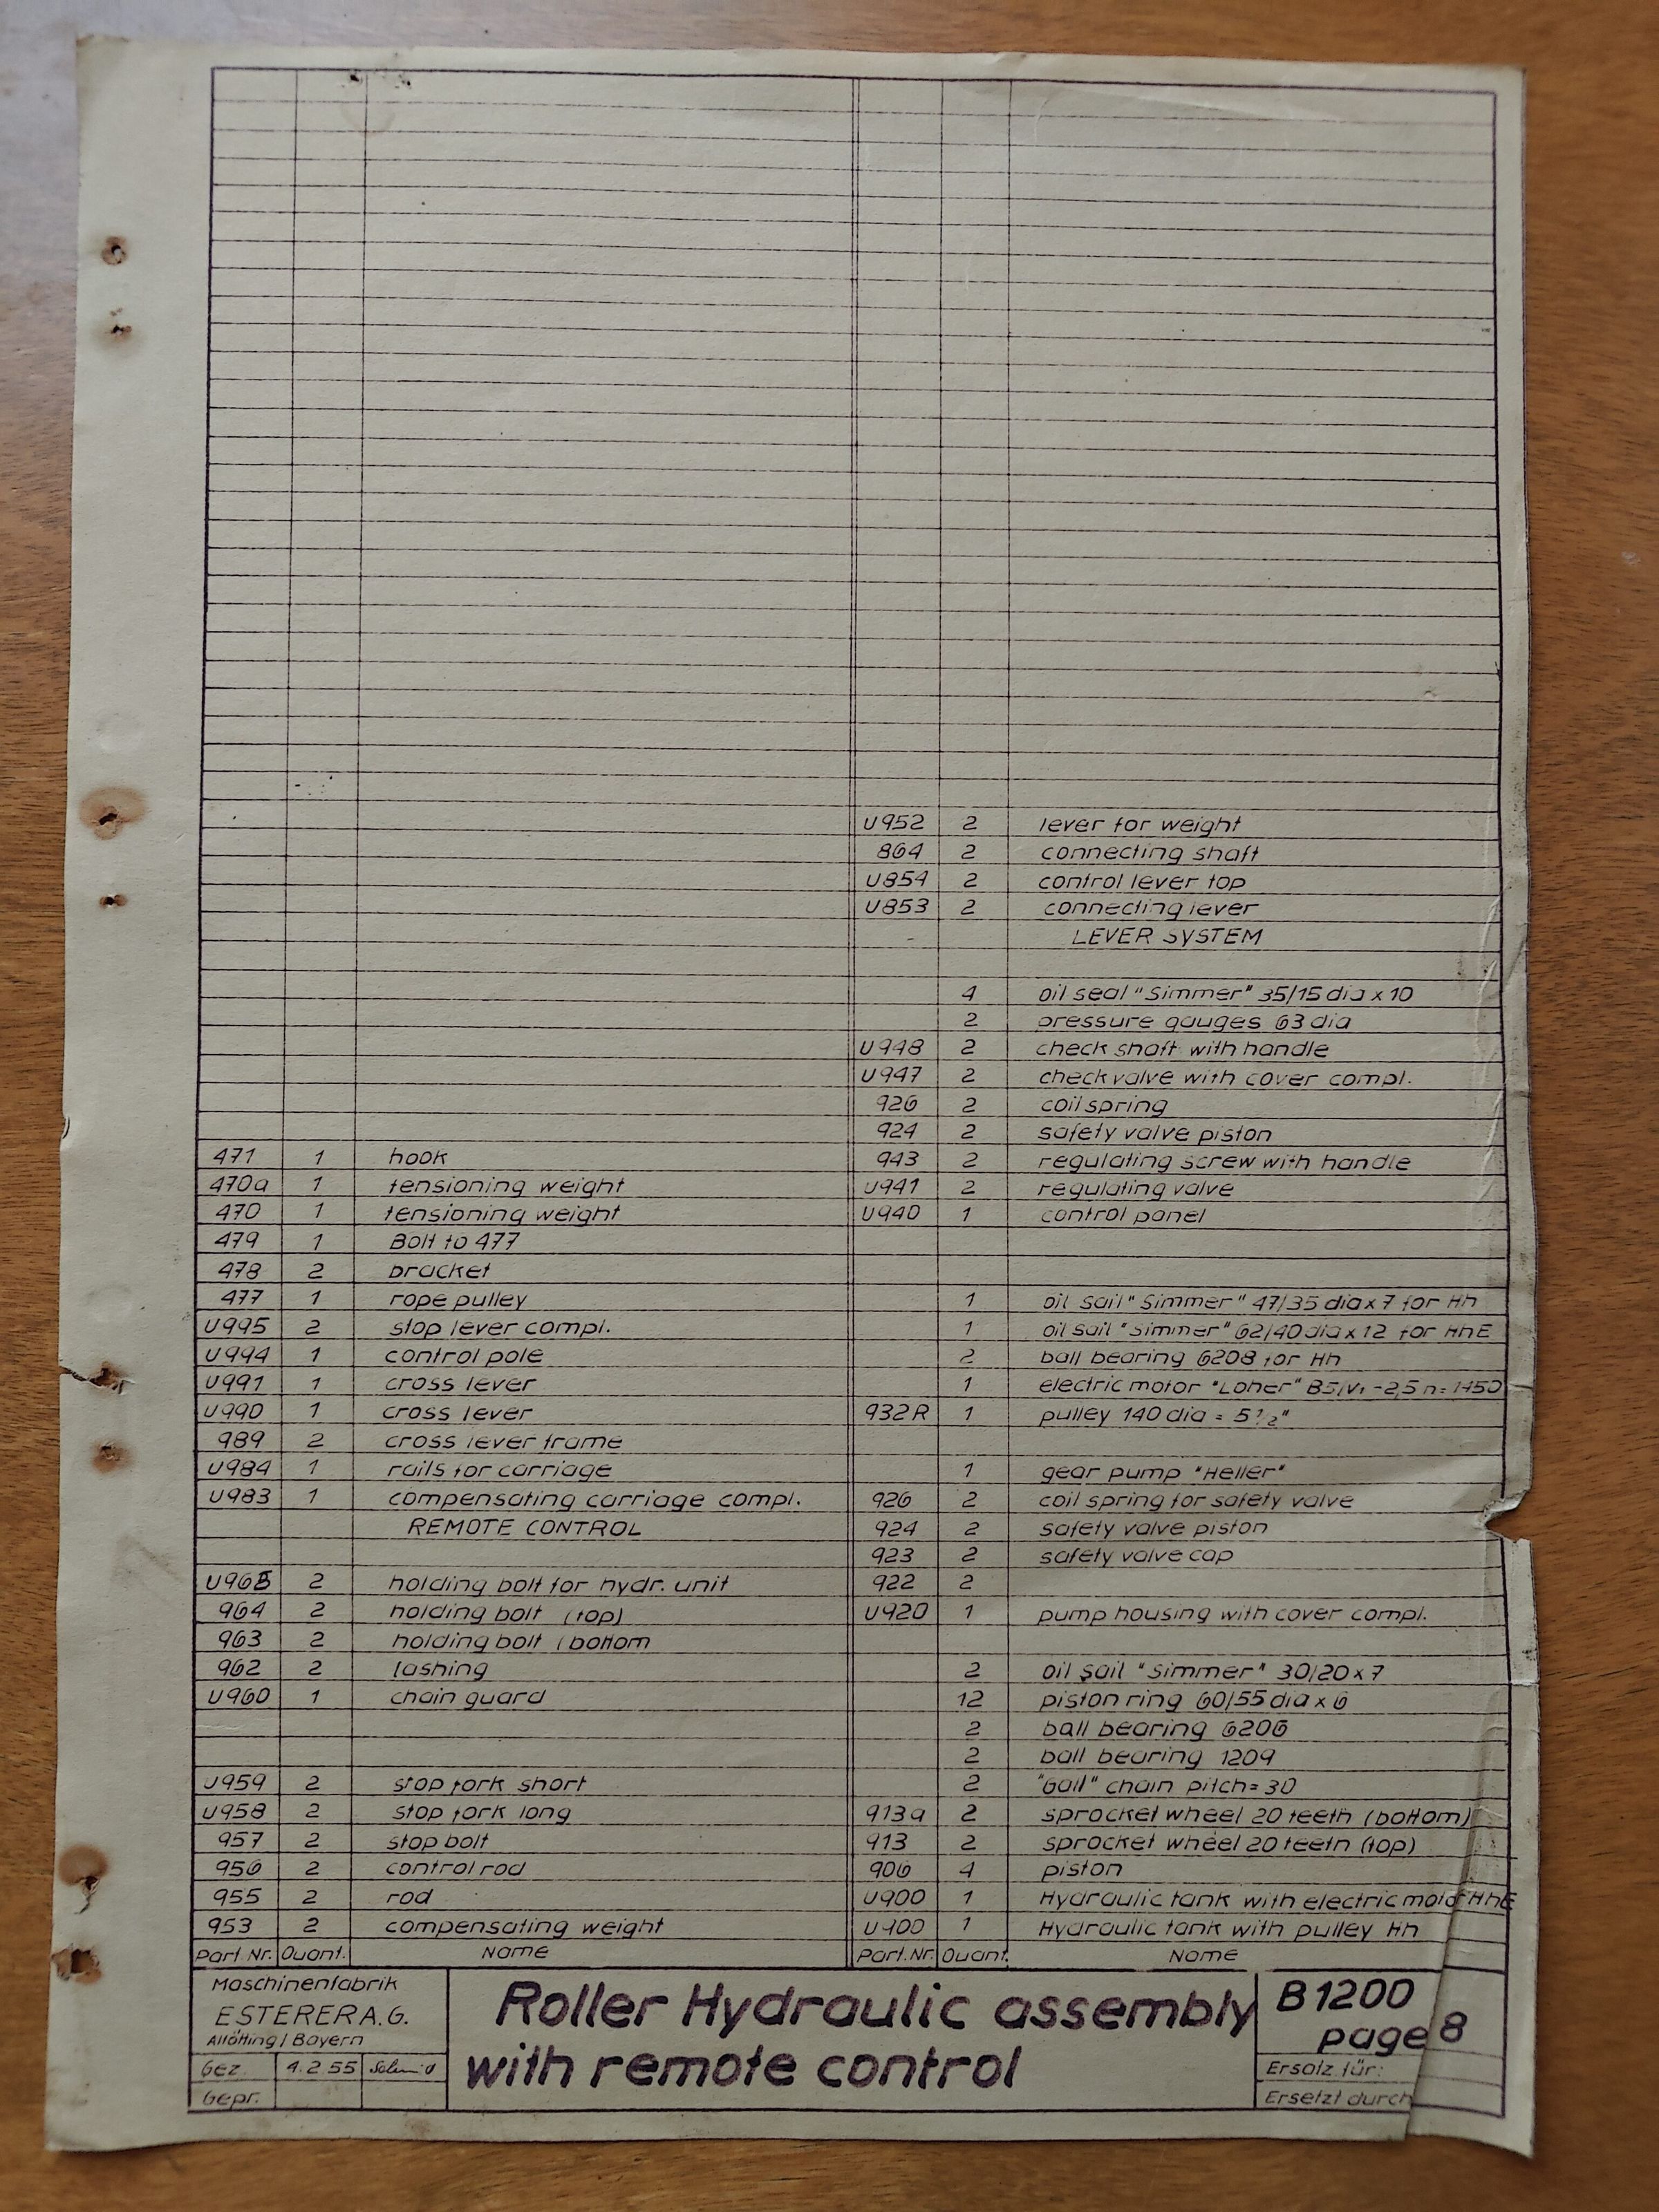 U952 2 lever for weight
864 2 connecting shaft
U854 2 control lever top
U853 2 connecting lever
LEVER SYSTEM
4 oil seal "Simmer" 35/15 dia x 10
2 pressure gauges 63 dia
U948 2 check shaft with handle
U947 2 check valve with cover compl.
926 2 coil spring
924 2 safety valve piston
471 1 hook
943 2 regulating screw with handle
470a 1 tensioning weight
U941 2 regulating valve
470 1 tensioning weight
U940 1 control panel
479 1 Bolt to 477
478 2 bracket
477 1 rope pulley
1 oil sail "Simmer" 47/35 dia x 7 for Hh
U995 2 stop lever compl.
1 oil sail "Simmer" 62/40 dia x 12 for HhE
U994 1 control pole
2 ball bearing 6208 for Hh
U991 1 cross lever
1 electric motor "Loher" B5/V1 -2,5 n= 1450
U990 1 cross lever
932R 1 pulley 140 dia = 5 1/2"
989 2 cross lever frame
U984 1 rails for carriage
1 gear pump "Heller"
U983 1 compensating carriage compl.
926 2 coil spring for safety valve
REMOTE CONTROL
924 2 safety valve piston
923 2 safety valve cap
U965 2 holding bolt for hydr. unit
922 2
964 2 holding bolt (top)
U920 1 pump housing with cover compl.
963 2 holding bolt (bottom
962 2 lashing
2 oil sail "Simmer" 30/20 x 7
U960 1 chain guard
12 piston ring 60/55 dia x 6
2 ball bearing 6206
2 ball bearing 1209
U959 2 stop fork short
2 "Gall" chain pitch = 30
U958 2 stop fork long
913a 2 sprocket wheel 20 teeth (bottom)
957 2 stop bolt
913 2 sprocket wheel 20 teeth (top)
956 2 control rod
906 4 piston
955 2 rod
U900 1 Hydraulic tank with electric motor HhE
953 2 compensating weight
U900 1 Hydraulic tank with pulley Hh
Part. Nr. Quant. Name
Part. Nr. Quant. Name
Maschinenfabrik
ESTERER A.G.
Altötting / Bayern
Gez. 4.2.55 Schmid
Gepr.
Roller Hydraulic assembly
with remote control
B1200
page 8
Ersatz für:
Ersetzt durch